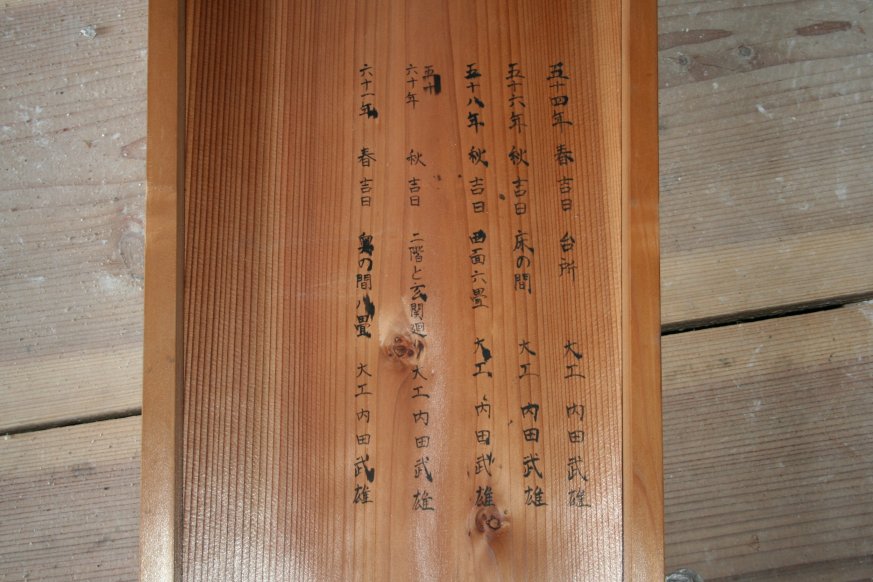 五十四年 春吉日 台所 大工 内田武雄
五十六年 秋吉日 床の間 大工 内田武雄
五十八年 秋吉日 西面六畳 大工 内田武雄
五十
六十年 秋吉日 二階と玄関廻り 大工 内田武雄
六十一年 春吉日 奥の間八畳 大工 内田武雄